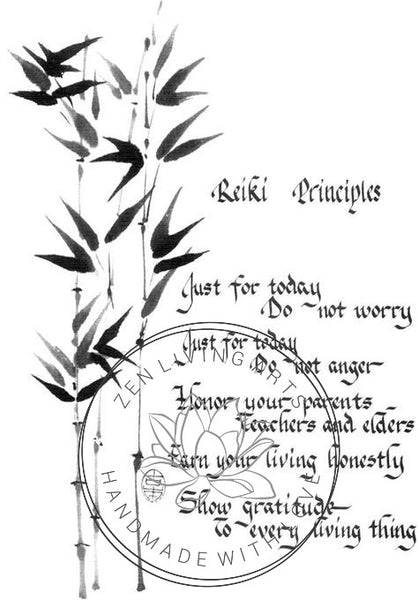 Reiki Principles
Just for today
Do not worry
Just for today
Do not anger
Honor your parents
teachers and elders
Earn your living honestly
Show gratitude
To every living thing
ZEN LIVING ARTS
HANDMADE WITH LOVE